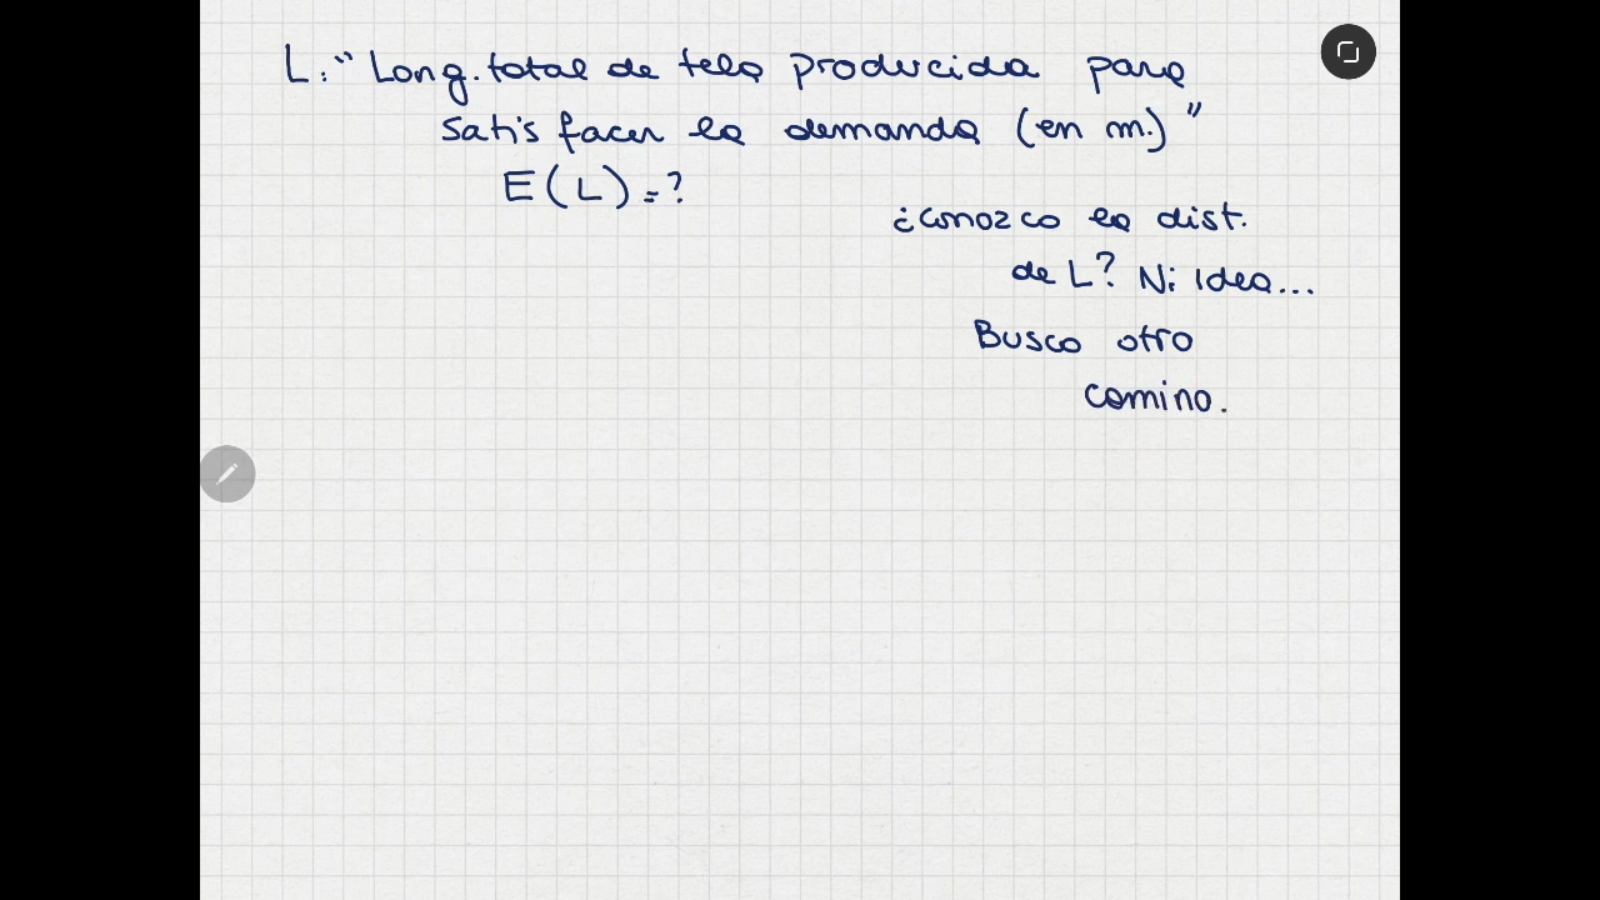 L: "Long. total de tela producida para
satisfacer la demanda (en m.)"
E(L)=?
¿Conozco la dist.
de L? Ni idea...
Busco otro
camino.